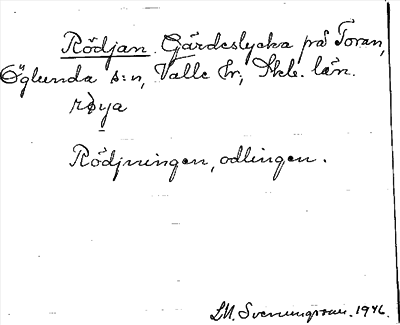 Rödjan. Gärdeslycka på Toran,
Öglunda s:n, Valle hr, Skb. län.
røya
Rödjningen, odlingen.
L.M. Svenungsson. 1946.